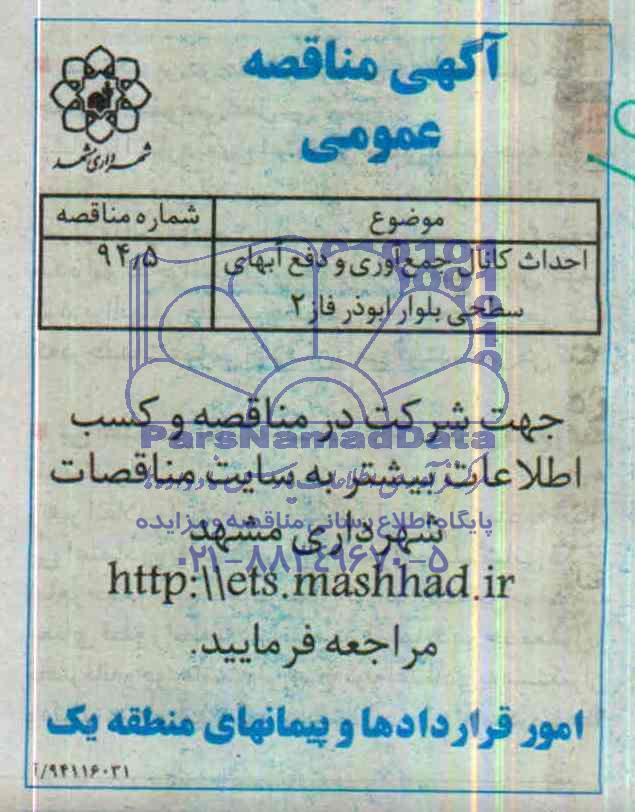 آگهی مناقصه
عمومی
شهرداری مشهد
موضوع شماره مناقصه
احداث کانال جمع‌آوری و دفع آبهای ۹۴٫۵
سطحی بلوار ابوذر فاز۲
جهت شرکت در مناقصه و کسب
ParsNamadData
اطلاعات بیشتر به سایت مناقصات
پایگاه اطلاع رسانی مناقصه و مزایده
شهرداری مشهد
۰۲۱-۸۸۳۴۹۶۷۰-۵
http:\\ets.mashhad.ir
مراجعه فرمایید.
امور قراردادها و پیمانهای منطقه یک
/۹۴۱۱۶۰۳۱